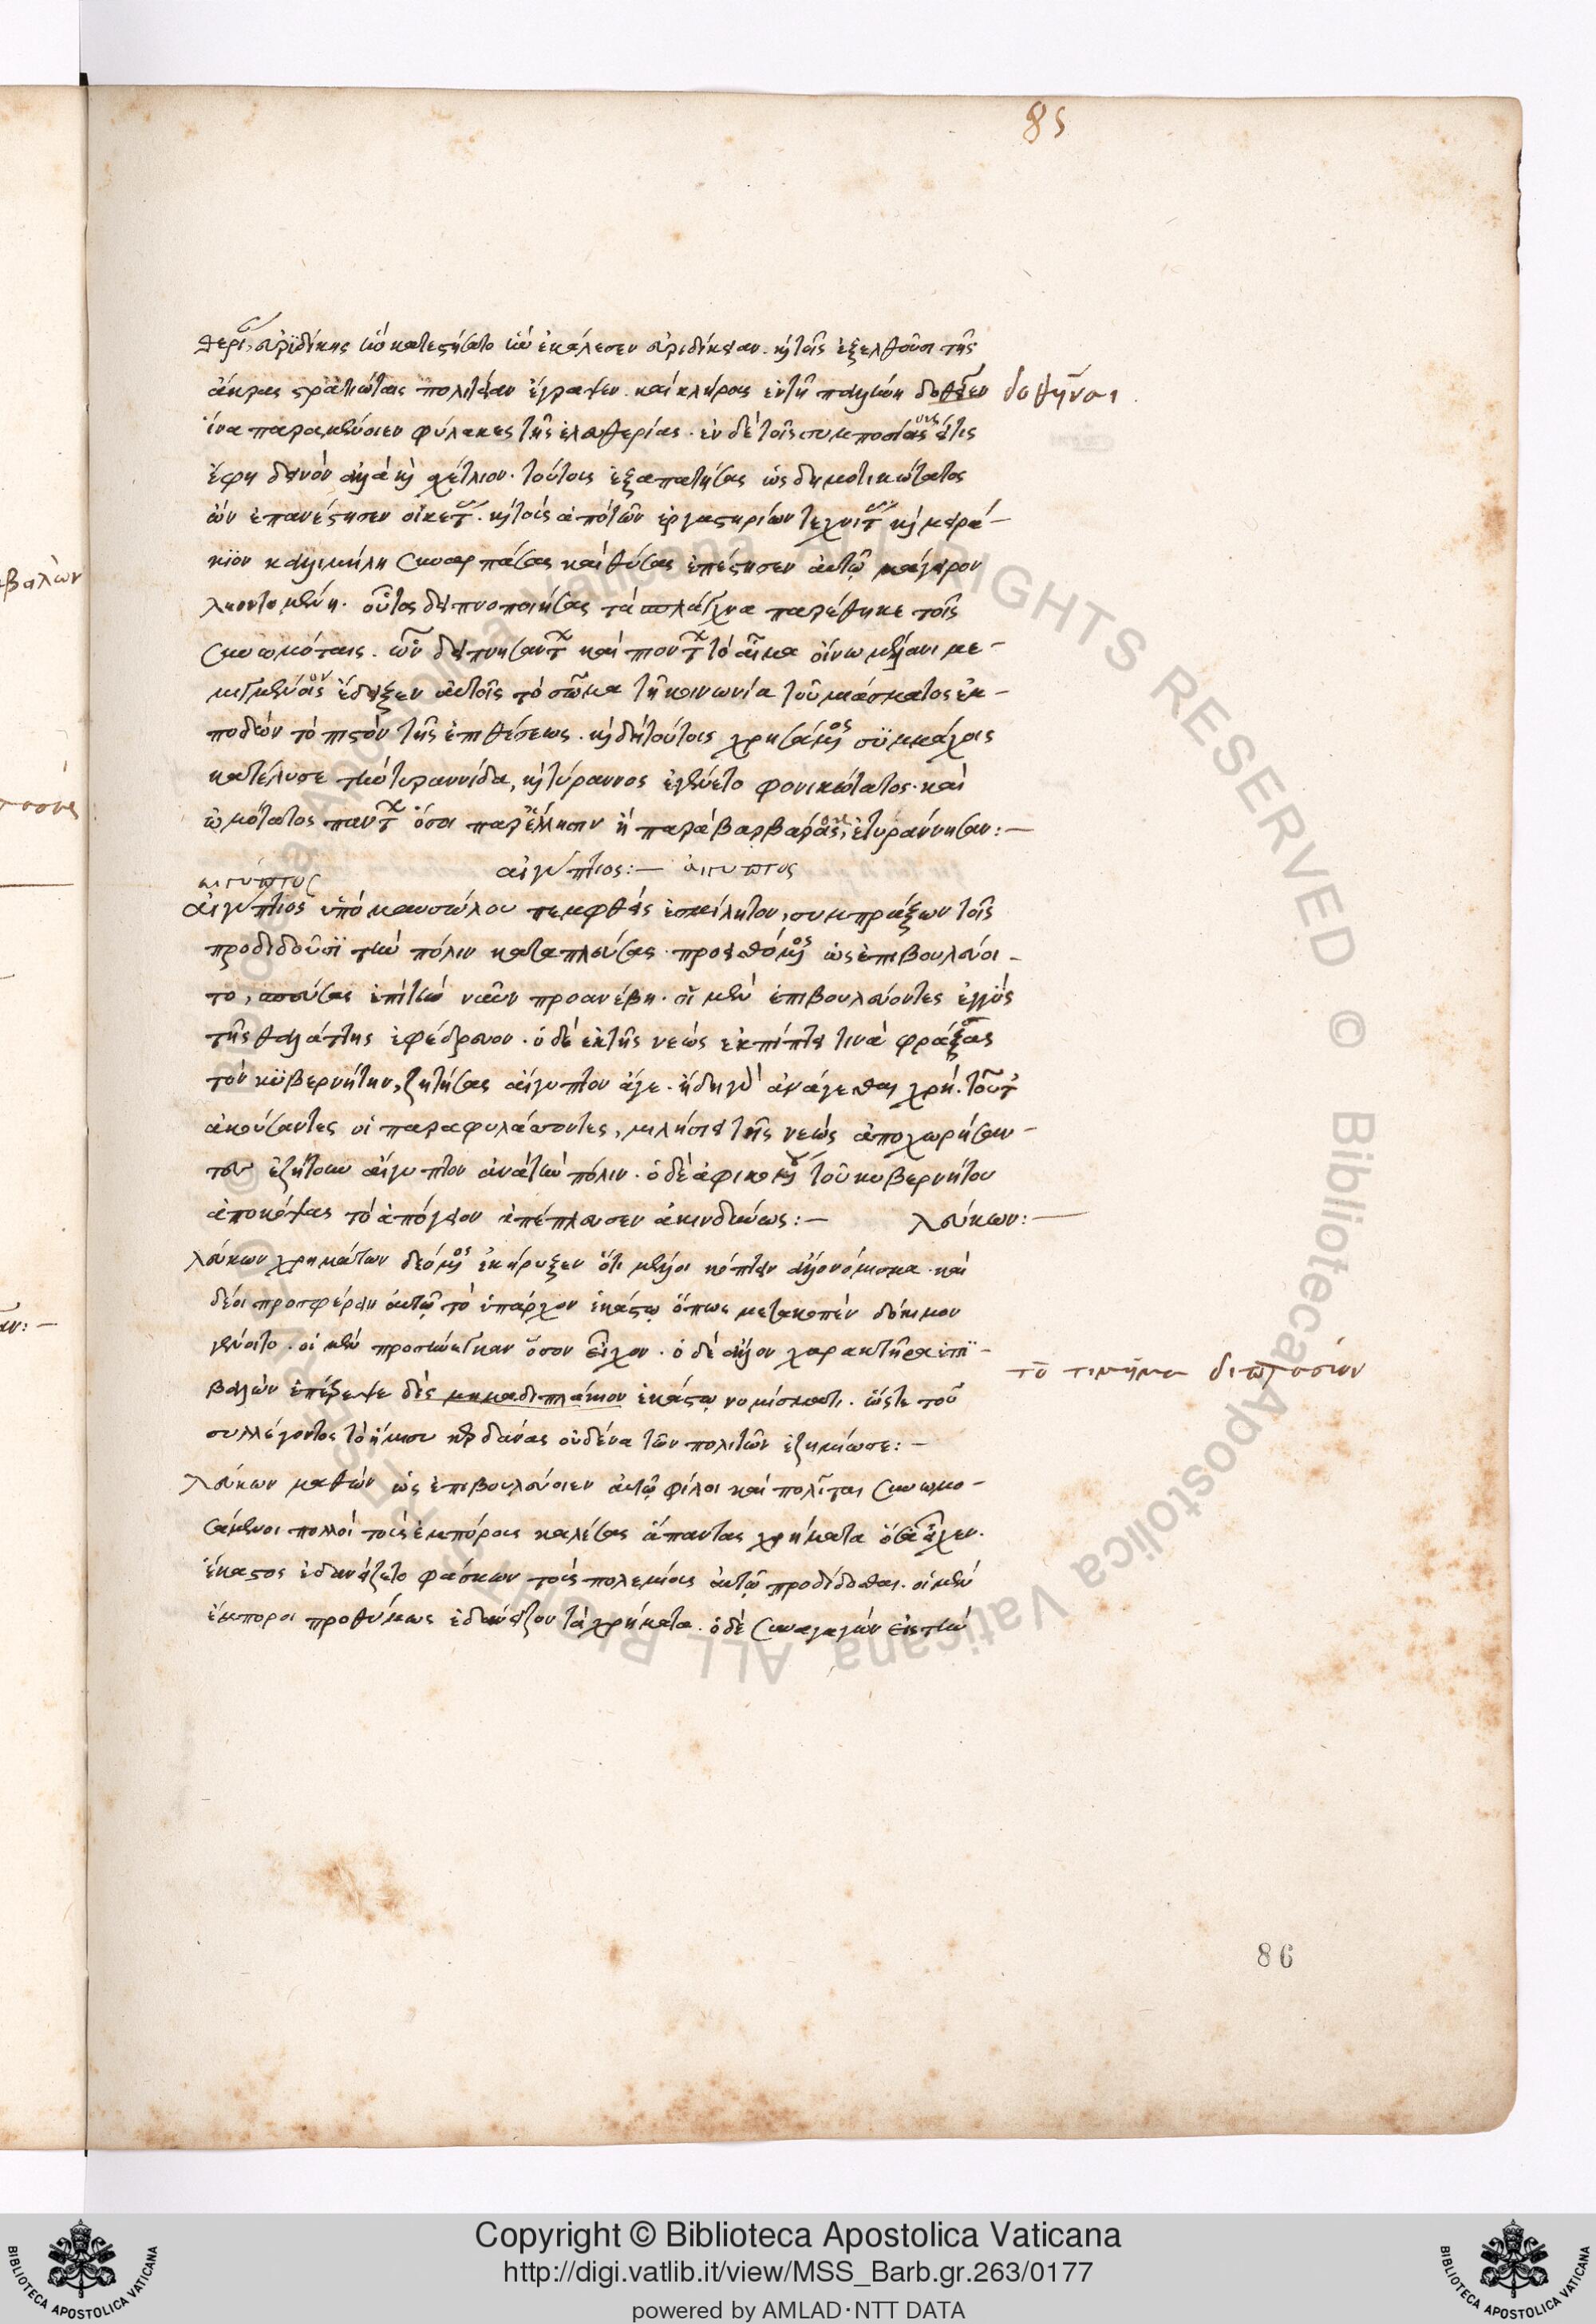 85
περὶ εὐριδίκης ἣν κατεστήσατο ἣν ἐκάλεσεν εὐριδίκειαν. καὶ τοῖς ἐξελθοῦσι τῆς
ἄκρας στρατιώταις πολιτείαν ἔγραψεν. καὶ κλήρους ἐν τῇ παλλήνῃ δοθεῖεν δοθῆναι.
ἵνα παραμένοιεν φύλακες τῆς ἐλευθερίας. ἐν δὲ τοῖς συμποσίοις
ἔφη δεινὸν ἀλλὰ καὶ σχέτλιον. τούτοις ἐξαπατήσας ὡς δημοτικώτατος
ὢν ἐπανέστησεν οἰκέτας. καὶ τοὺς ἀπὸ τῶν ἐργαστηρίων τεχνίτας καὶ μειρά-
κιον καλλιμέλη συναρπάσας καὶ θύσας ἐπέστησεν αὐτῷ μάγειρον
λεοντομένη. οὗτος δειπνοποιήσας τὰ σπλάγχνα παρέθηκε τοῖς
συνωμόταις. ὧν δειπνησάντων καὶ πιόντων τὸ αἷμα οἴνῳ μέλανι με-
μιγμένον ἔδειξεν αὐτοῖς τὸ σῶμα τῇ κοινωνίᾳ τοῦ μιάσματος ἐκ-
ποδὼν τὸ πιστὸν τῆς ἐπιθέσεως. καὶ δὴ τούτοις χρησάμενος συμμάχοις
κατέλυσε τὴν τυραννίδα, καὶ τύραννος ἐγένετο φονικώτατος. καὶ
ὠμότατος πάντων ὅσοι παρ' ἕλλησιν ἢ παρὰ βαρβάροις ἐτυράννησαν:—
αἰγύπτιος:— αιγυπτος
αιγυπτος
αἰγύπτιος ὑπὸ μαυσώλου πεμφθεὶς ἐς μίλητον, συμπράξων τοῖς
προδιδοῦσι τὴν πόλιν καταπλεύσας. προσθόμενος ὡς ἐπιβουλεύοι-
το, σπεύσας ἐπὶ τὴν ναῦν προανέβη. οἱ μὲν ἐπιβουλεύοντες ἐγγὺς
τῆς θαλάττης ἐφέδρευον. ὁ δὲ ἐκ τῆς νεὼς ἐκπίπτει τινὰ φράξας
τὸν κυβερνήτην, ζητήσας αἴγυπτον ἄγε. ἤδη γὰρ ἀνάγεσθαι χρή. τοῦτ'
ἀκούσαντες οἱ παραφυλάσσοντες, μιλήσιοι τῆς νεὼς ἀποχωρήσαν-
τες ἐζήτουν αἴγυπτον ἀνὰ τὴν πόλιν. ὁ δὲ ἀφικομένου τοῦ κυβερνήτου
ἀποκόψας τὸ ἀπόγειον ἐπέπλευσεν ἀκινδύνως:— λεύκων:—
λεύκων χρημάτων δεόμενος ἐκήρυξεν ὅτι μέλλοι κόπτειν ἄλλο νόμισμα. καὶ
δέοι προσφέρειν αὐτῷ τὸ ὑπάρχον ἑκάστῳ ὅπως μετακοπὲν δόκιμον
γένοιτο. οἱ μὲν προσήνεγκαν ὅσον εἶχον. ὁ δὲ ἄλλον χαρακτῆρα ἐπι-
βαλὼν ἐπέγραψε δὲς μηκαδιπλάσιον ἑκάστῳ νομίσματι. ὥστε τοῦ τὸ τιμῆμα διπλάσιον
συλλέγοντος τὸ ἥμισυ κερδάνας οὐδένα τῶν πολιτῶν ἐζημίωσε:—
λεύκων μαθὼν ὡς ἐπιβουλεύοιεν αὐτῷ φίλοι καὶ πολῖται συνωμο-
σάμενοι πολλοὶ τοὺς ἐμπόρους καλέσας ἅπαντας χρήματα ὅσα εἶχεν.
ἕκαστος ἐδανείζετο φάσκων τοὺς πολεμίους αὐτῷ προδίδοσθαι. οἱ μὲν
ἔμποροι προθύμως ἐδάνειζον τὰ χρήματα. ὁ δὲ συναγαγὼν εἰς τὴν
86
βαλὼν
Copyright © Biblioteca Apostolica Vaticana
http://digi.vatlib.it/view/MSS_Barb.gr.263/0177
powered by AMLAD·NTT DATA
BIBLIOTECA APOSTOLICA VATICANA
BIBLIOTECA APOSTOLICA VATICANA
© Biblioteca Apostolica Vaticana ALL RIGHTS RESERVED